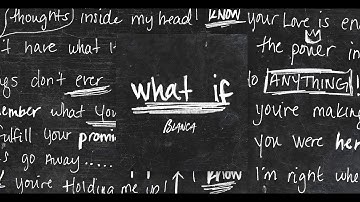 (thoughts) inside my head! KNOW
I have what i
gs don't ever
member what you
fulfill your promi
s go Away.....
& you're Holding me up! ↑ I know
what if
BLANCA
your Love is en
the power in
to ANYTHING!
you're making
you were her
I'm right whe